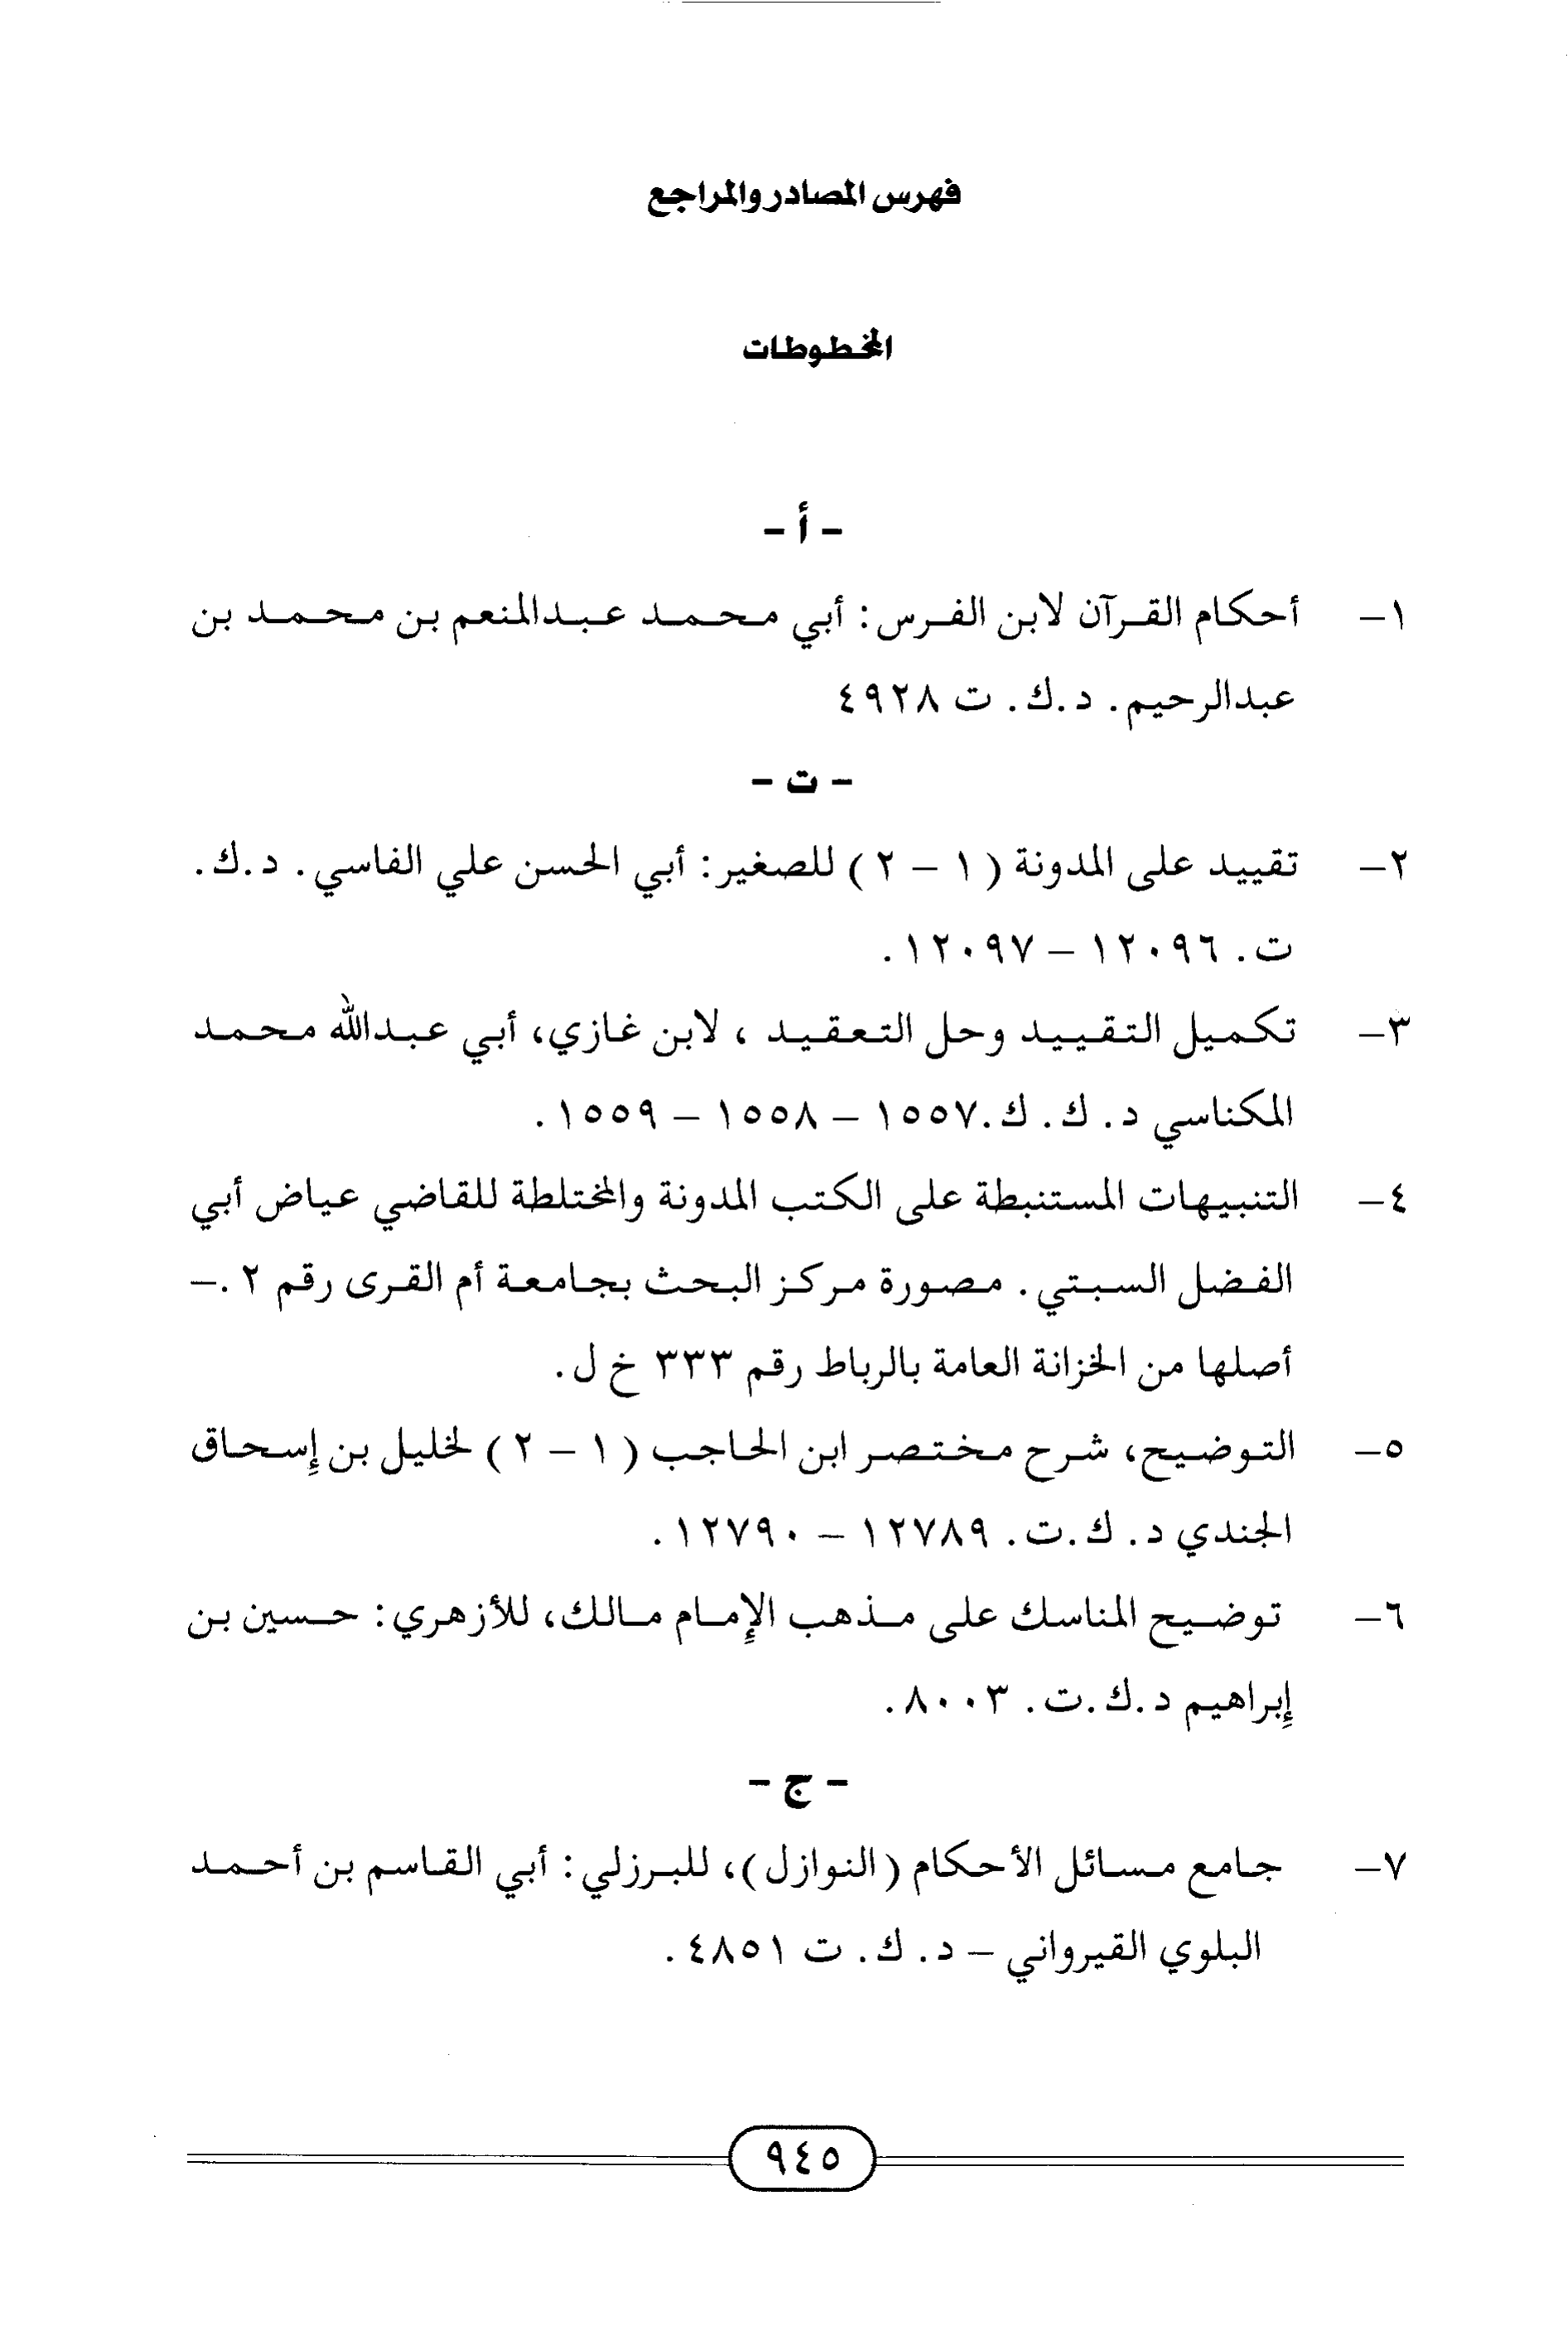 فهرس المصادر والمراجع
المخطوطات
- أ -
١- أحكام القرآن لابن الفرس: أبي محمد عبدالمنعم بن محمد بن
عبدالرحيم. د.ك. ت ٤٩٢٨
- ت -
٢- تقييد على المدونة ( ١ - ٢ ) للصغير: أبي الحسن علي الفاسي. د.ك.
ت. ١٢٠٩٦ - ١٢٠٩٧.
٣- تكميل التقييد وحل التعقيد ، لابن غازي، أبي عبدالله محمد
المكناسي د. ك. ك.١٥٥٧ - ١٥٥٨ - ١٥٥٩.
٤- التنبيهات المستنبطة على الكتب المدونة والمختلطة للقاضي عياض أبي
الفضل السبتي. مصورة مركز البحث بجامعة أم القرى رقم ٢ .-
أصلها من الخزانة العامة بالرباط رقم ٣٣٣ خ ل.
٥- التوضيح، شرح مختصر ابن الحاجب ( ١ - ٢ ) لخليل بن إسحاق
الجندي د. ك.ت. ١٢٧٨٩ - ١٢٧٩٠.
٦- توضيح المناسك على مذهب الإمام مالك، للأزهري: حسين بن
إبراهيم د.ك.ت. ٨٠٠٣.
- ج -
٧- جامع مسائل الأحكام (النوازل)، للبرزلي: أبي القاسم بن أحمد
البلوي القيرواني - د. ك. ت ٤٨٥١.
٩٤٥